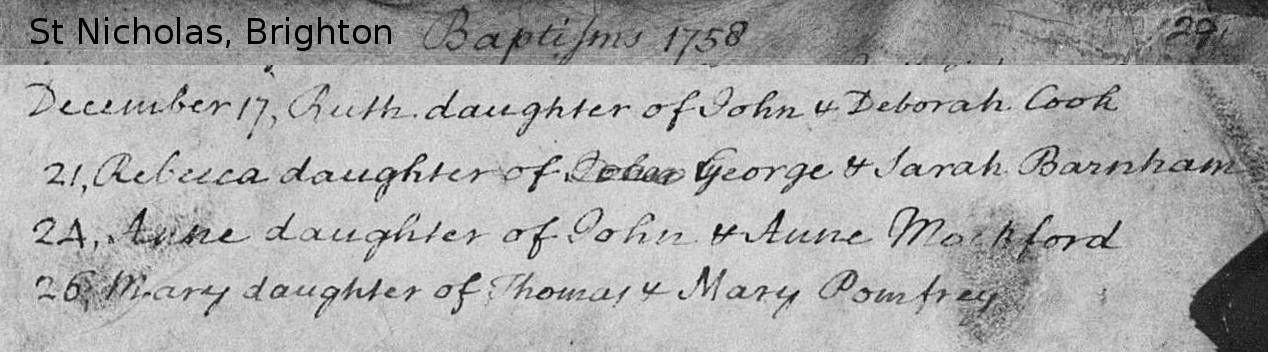 St Nicholas, Brighton Baptisms 1758 29.
December 17, Ruth daughter of John & Deborah Cook
21, Rebecca daughter of George & Sarah Barnham
24, Anne daughter of John & Anne Mockford
26, Mary daughter of Thomas & Mary Pomfrey